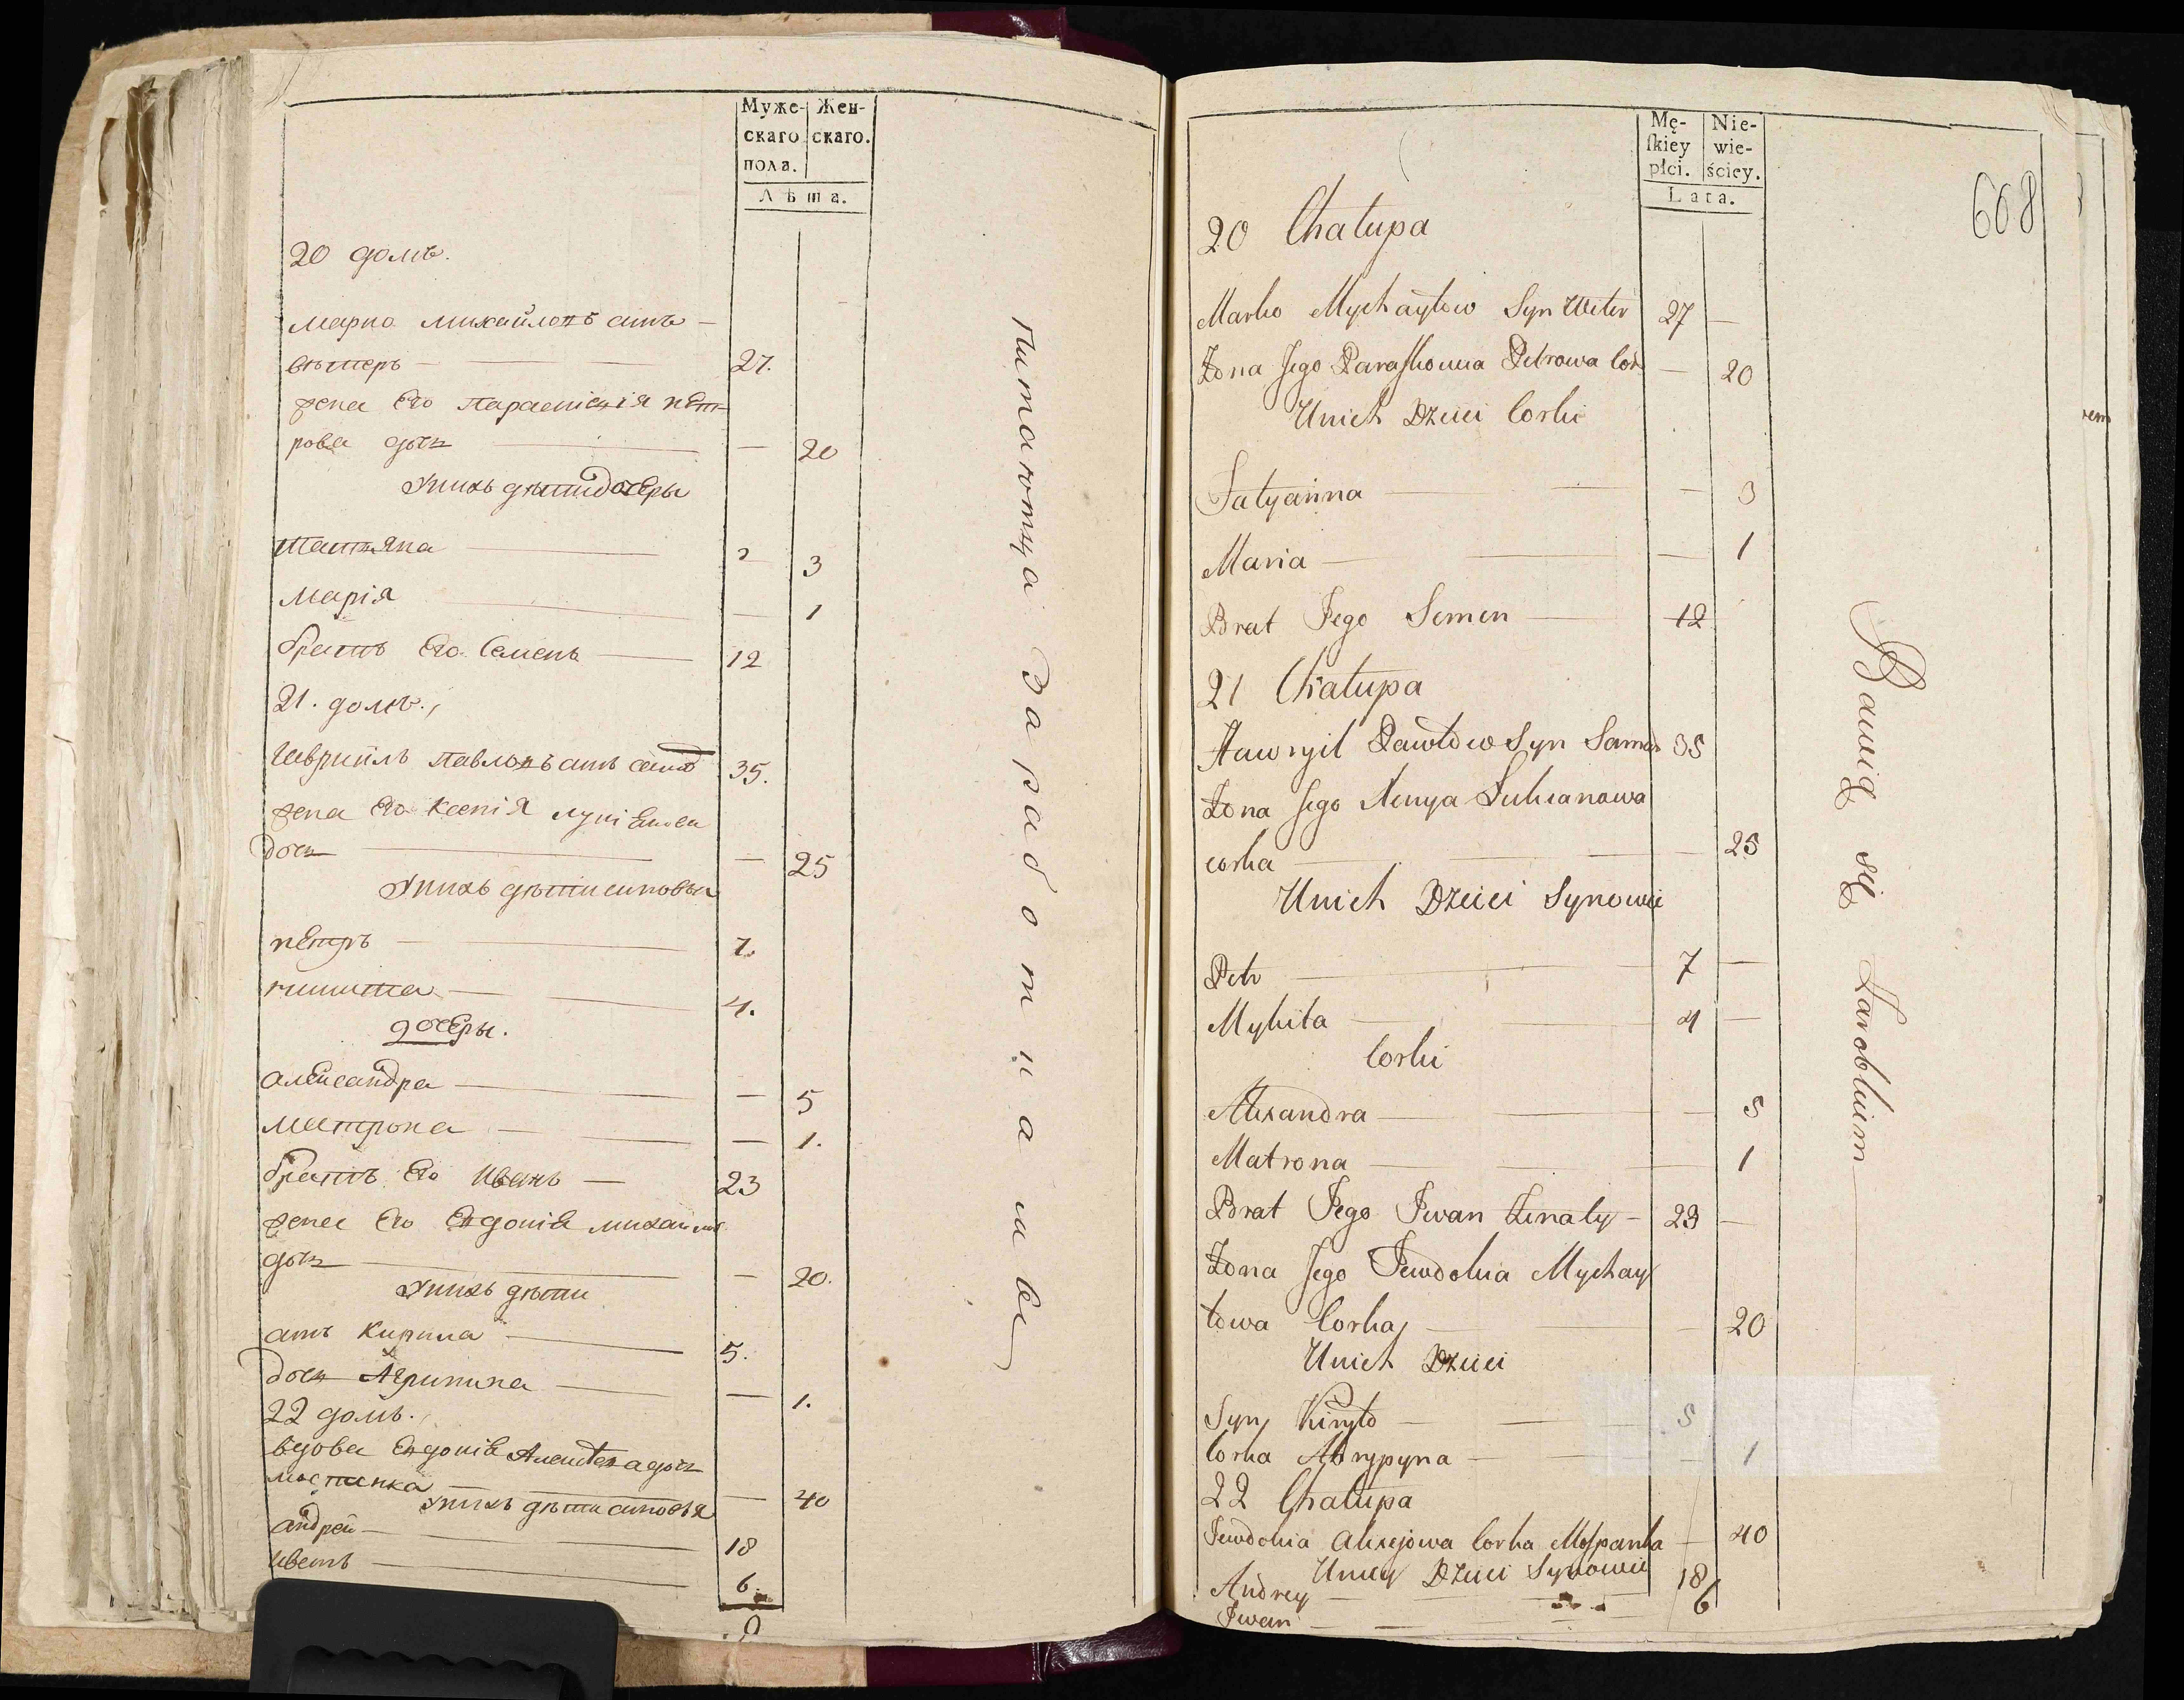 Муже- Жен-
скаго скаго.
пола.
Лѣта.
20 домъ.
марко михайловъ сынъ
вѣтеръ — 27.
жена Его параскевія пет-
рова дочь — 20
У нихъ дѣти дочеры
татьяна — 3
марія — 1
братъ Его Семенъ — 12
21. домъ.
гавриилъ павловъ сынъ 35.
жена Его Ксенія
дочь — 25
У нихъ дѣти синовья
петръ — 7.
никита — 4.
дочеры.
александра — 5
матрона — 1.
братъ Его Иванъ — 23
жена Его Евдокія михайлов
дочь — 20.
У нихъ дѣти
синъ Кирила — 5.
дочь Агрипина — 1.
22 домъ.
вдова Евдокія Алексеева дочь
моспанка — 40
У нихъ дѣти синовья
андрей — 18
иванъ — 6.
питаютца заработками
Mę- Nie-
ſkiey wie-
płci. ściey.
Lata.
608
20 Chałupa
Marko Mychayłow Syn Weter 27 —
Żona Jego Paraſkowia Petrowa Cor — 20
Unich Dzieci Corki
Tatyanna — 3
Maria — 1
Brat Jego Semen — 12
21 Chałupa
Hawryił Pawłow Syn 35
Żona Jego Xenya Łukianowa
corka — 25
Unich Dzieci Synowie
Petr — 7 —
Mykita — 4 —
Corki
Alexandra — 5
Matrona — 1
Brat Jego Iwan — 23 —
Żona Jego Jewdokia Mychay
łowa Corka — 20
Unich Dzieci
Syn Kiryło — 5
Corka Ahrypyna — 1
22 Chałupa
Jewdokia Alexejowa Corka Moſpanka — 40
Uniey Dzieci Synowie
Andrey — 18
Iwan — 6
Bawią się Zarobkiem